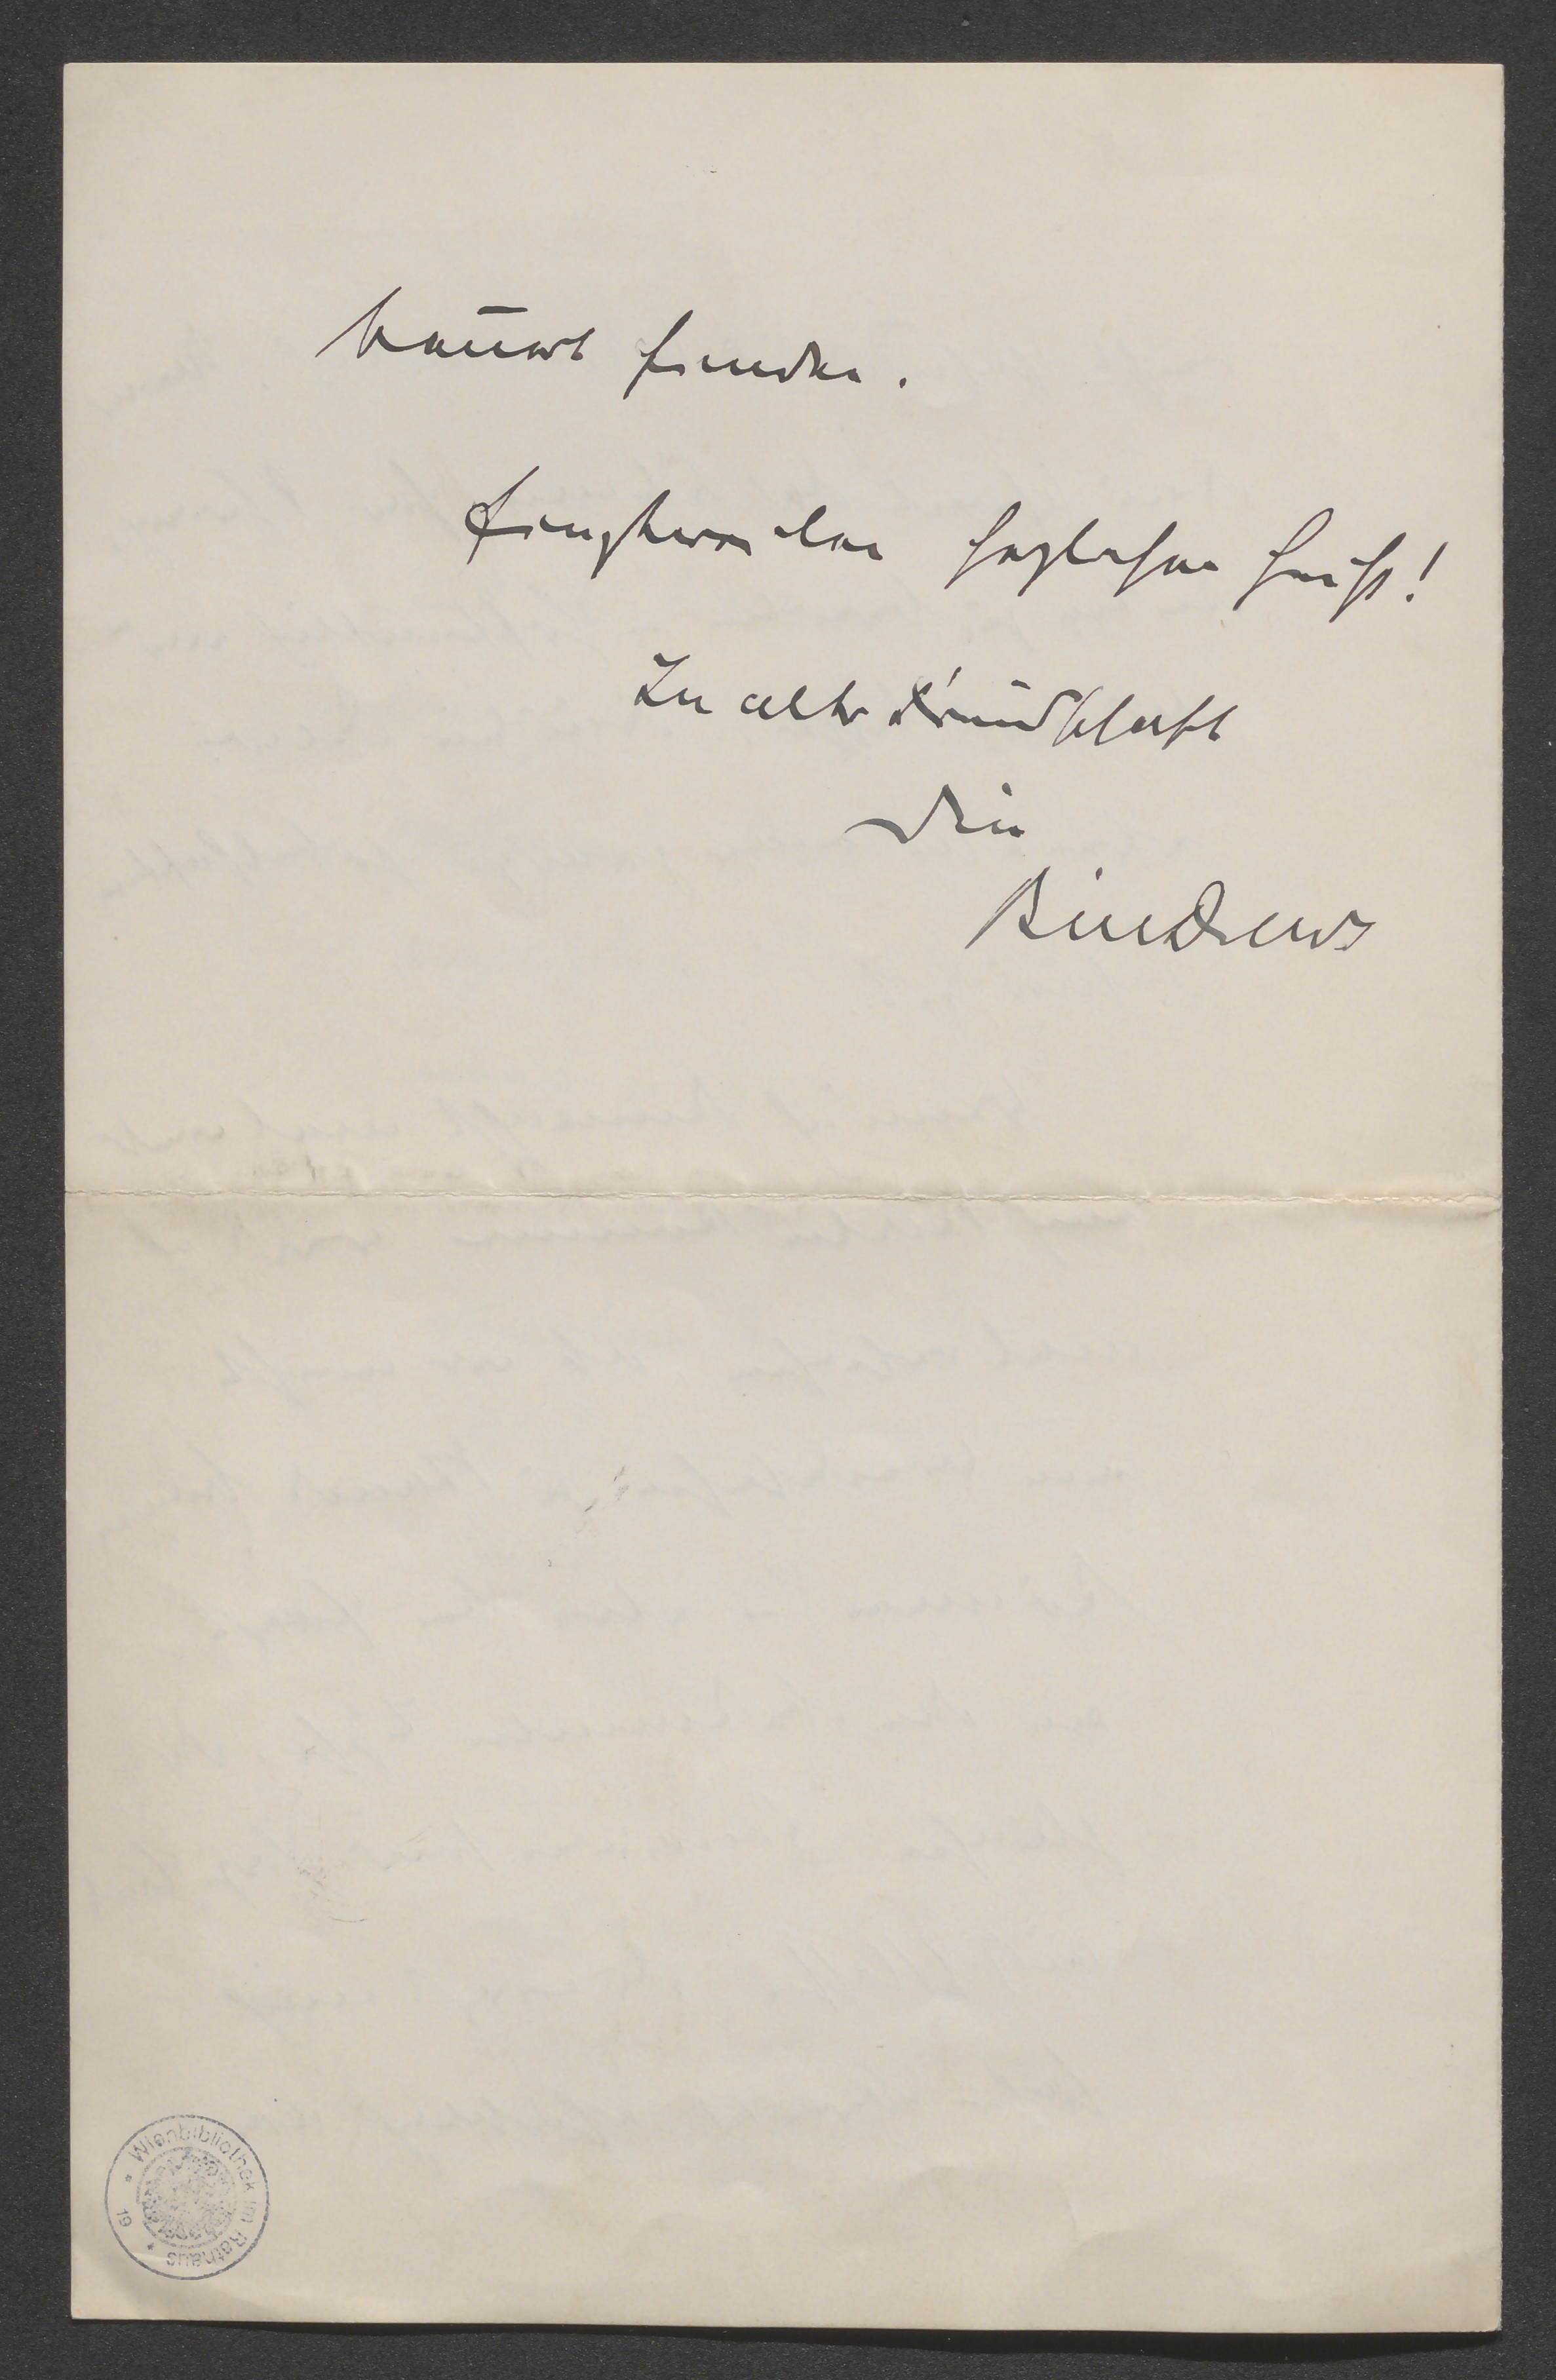 finden.
Einstweilen herzlichen Gruß!
In alter Freundschaft
Dein
Wienbibliothek im Rathaus
19